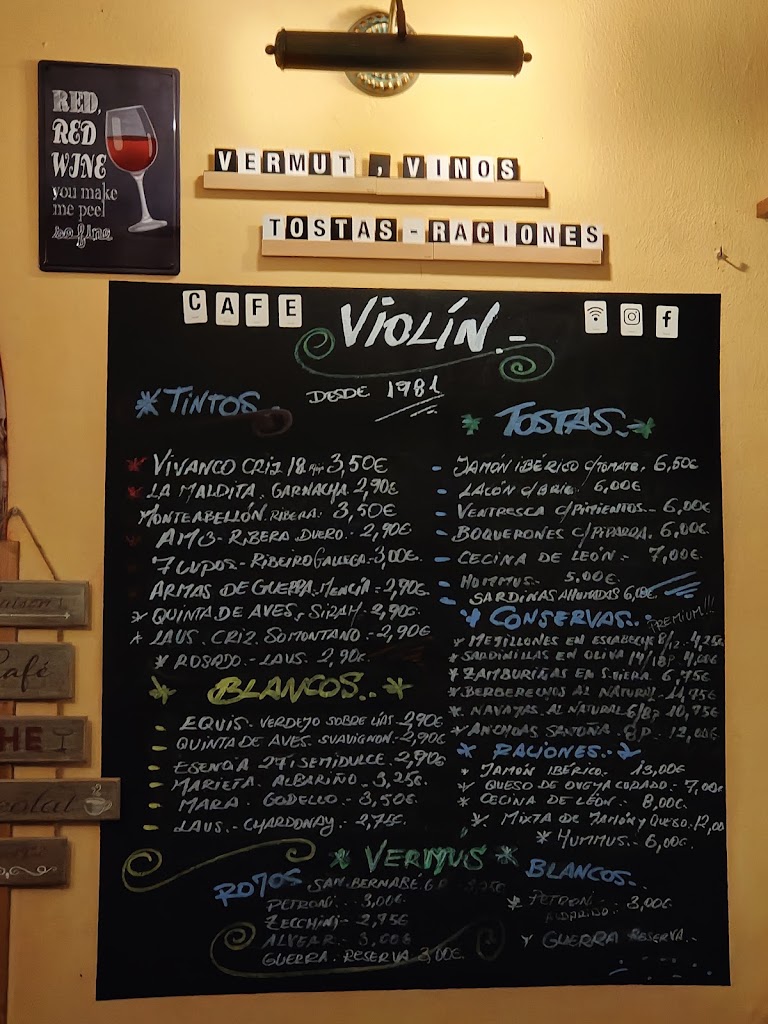 RED,
RED
WINE
you make
me peel
so fine
VERMUT, VINOS
TOSTAS-RACIONES
CAFE VIOLÍN.-
DESDE 1981
* TINTOS.
* VIVANCO CRIZ 18 3,50€
* LA MALDITA. GARNACHA 2,90€
MONTEABELLÓN. RIBERA. 3,50€
* AM3- RIBERA DUERO.- 2,90€
7 LUPOS- RIBEIRO GALLEGA- 3,00€
ARMAS DE GUERRA. MENCÍA- 2,90€
* QUINTA DE AVES. SIRAH- 2,90€
* LAUS. CRIZ. SOMONTANO.- 2,90€
* ROSADO.- LAUS. 2,90€
* BLANCOS.. *
- EQUIS. VERDEJO SOBRE LÍAS- 2,90€
- QUINTA DE AVES. SUAVIGNON.- 2,90€
- ESENCIA 27. SEMIDULCE.- 2,90€
- MARIETA. ALBARIÑO - 3,25€
- MARA. GODELLO.- 3,50€
- LAUS.- CHARDONAY.- 2,75€
* TOSTAS.- *
- JAMÓN IBÉRICO C/TOMATE. 6,50€
- LACÓN C/BRIE. 6,00€
- VENTRESCA C/PIMIENTOS.- 6,00€
- BOQUERONES C/PIPARRA. 6,00€
- CECINA DE LEÓN.- 7,00€
- HUMMUS.- 5,00€
- SARDINAS AHUMADAS
* CONSERVAS.. PREMIUM!!!
* MEJILLONES EN ESCABECHE 8/12.- 4,25€
* SARDINILLAS EN OLIVA 14/18 P. 4,00€
* ZAMBURIÑAS EN S. VIERA. 6,75€
* BERBERECHOS AL NATURAL. 11,75€
* NAVAJAS AL NATURAL 6/8P. 10,75€
* ANCHOAS SANTOÑA 8P.- 12,00€
* RACIONES.-
* JAMÓN IBÉRICO.- 13,00€
* QUESO DE OVEJA CURADO.- 7,00€
* CECINA DE LEÓN.- 8,00€
* MIXTA DE JAMÓN Y QUESO.- 12,00
* HUMMUS.- 6,00€
* VERMUS *
ROJOS
SAN BERNABÉ
PETRONI.- 3,00€
ZECCHINI- 2,75€
ALVEAR.- 3,00€
GUERRA. RESERVA 3,00€
BLANCOS..
* PETRONI 3,00€
ALBARIÑO.-
* GUERRA RESERVA.-
Café